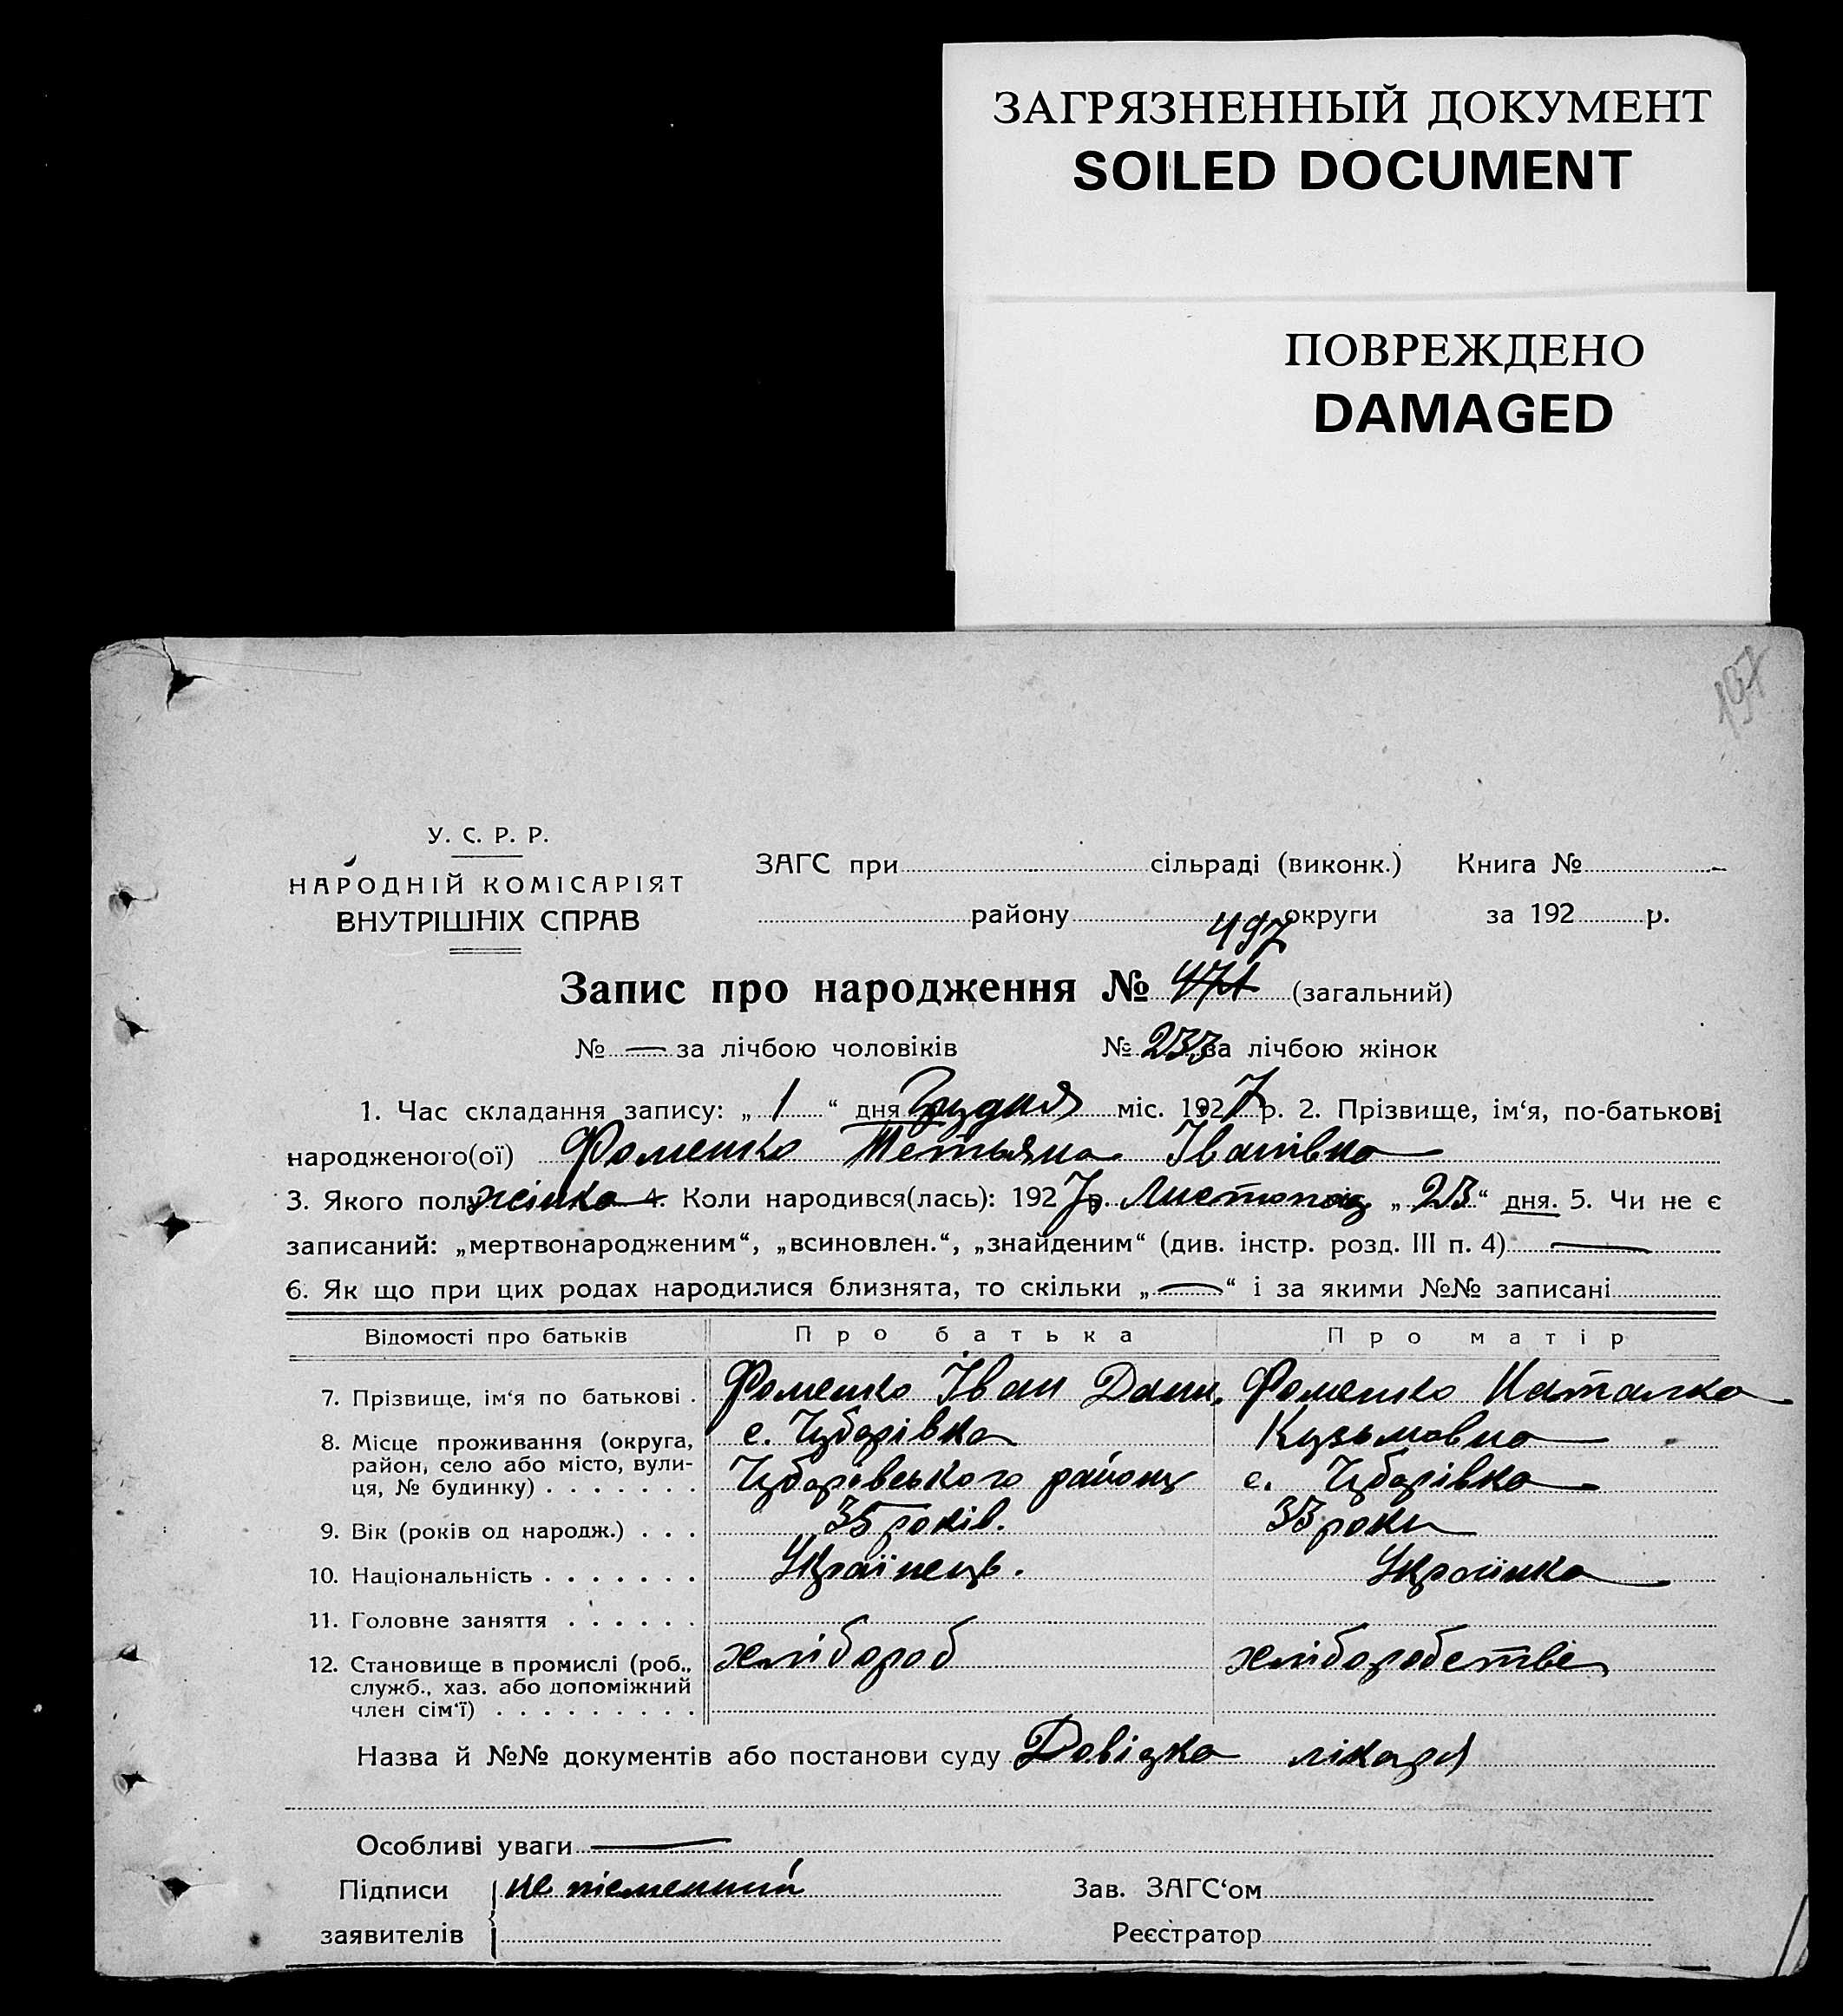 ЗАГРЯЗНЕННЫЙ ДОКУМЕНТ
SOILED DOCUMENT
ПОВРЕЖДЕНО
DAMAGED
197
У. С. Р. Р.
НАРОДНІЙ КОМІСАРІЯТ
ВНУТРІШНІХ СПРАВ
ЗАГС при сільраді (виконк.) Книга №
району округи за 192 р.
497
Запис про народження № 471 (загальний)
№ — за лічбою чоловіків № 233 за лічбою жінок
1. Час складання запису: „ 1 “ дня Грудня міс. 1927 р. 2. Прізвище, ім‘я, по-батькові
народженого(ої) Фоменко Тетьяна Іванівна
3. Якого полу жінка 4. Коли народився(лась): 1927 р. Листопад „ 23 “ дня. 5. Чи не є
записаний: „мертвонародженим“, „всиновлен.“, „знайденим“ (див. інстр. розд. III п. 4) —
6. Як що при цих родах народилися близнята, то скільки „ — “ і за якими №№ записані
Відомості про батьків Про батька Про матір
7. Прізвище, ім‘я по батькові . Фоменко Іван Дани. Фоменко Наталка
8. Місце проживання (округа, с. Чубарівка Кузьмовна
район, село або місто, вули- Чубарівського району с. Чубарівка
ця, № будинку) . . . . . . .
9. Вік (років од народж.) . . . 35 років. 33 роки
10. Національність . . . . . . . Українець. Українка
11. Головне заняття . . . . . .
12. Становище в промислі (роб., хлібороб хліборобстве
служб., хаз. або допоміжний
член сім‘ї) . . . . . . . . .
Назва й №№ документів або постанови суду Довідка лікаря
Особливі уваги —
Підписи не písменний Зав. ЗАГС‘ом
заявителів Реєстратор